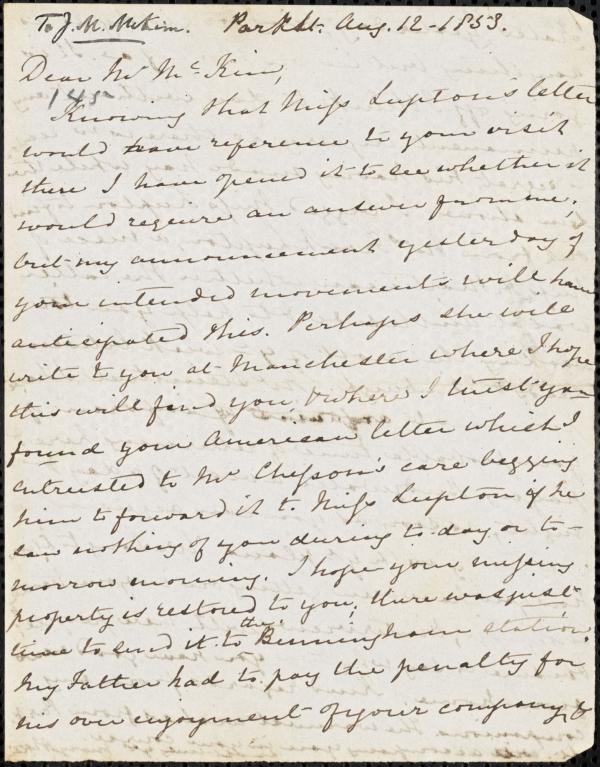 To J. M. McKim. Park St. Aug. 12 - 1853.
Dear Mr Mc.Kim,
145
Knowing that Miss Lupton's letter
would have reference to your visit
there I have opened it to see whether it
would require an answer from me,
but my announcement yesterday of
your intended movements will have
anticipated this. Perhaps she will
write to you at Manchester where I hope
this will find you & where I trust you
found your American letter which I
entrusted to Mr Chesson's care begging
him to forward it to Miss Lupton if he
saw nothing of you during to-day or to-
morrow morning. I hope your missing
property is restored to you, there was just
time to send it to the Birmingham station.
My Father had to pay the penalty for
his over enjoyment of your company, &